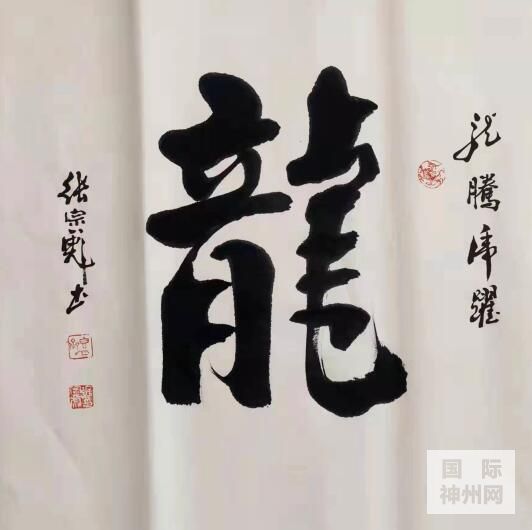 龍騰虎躍
龍
張宗彪书
国际
神州网